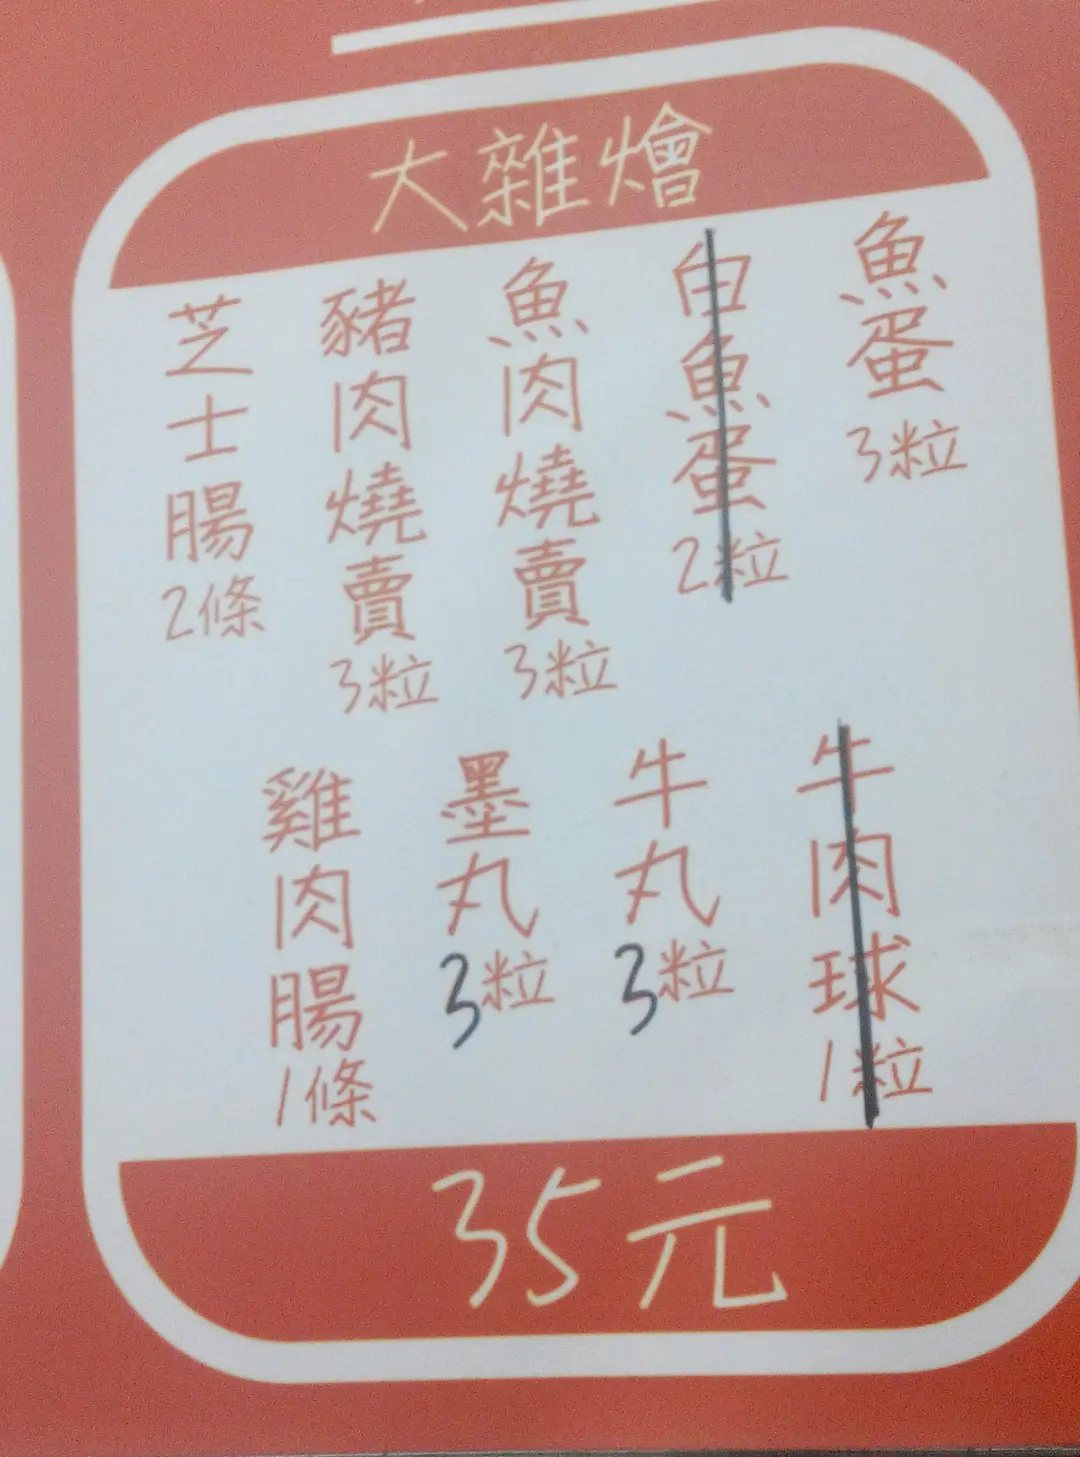 大雜燴
魚蛋3粒
白魚蛋2粒
魚肉燒賣3粒
豬肉燒賣3粒
芝士腸2條
牛肉球1粒
牛丸3粒
墨丸3粒
雞肉腸1條
35元